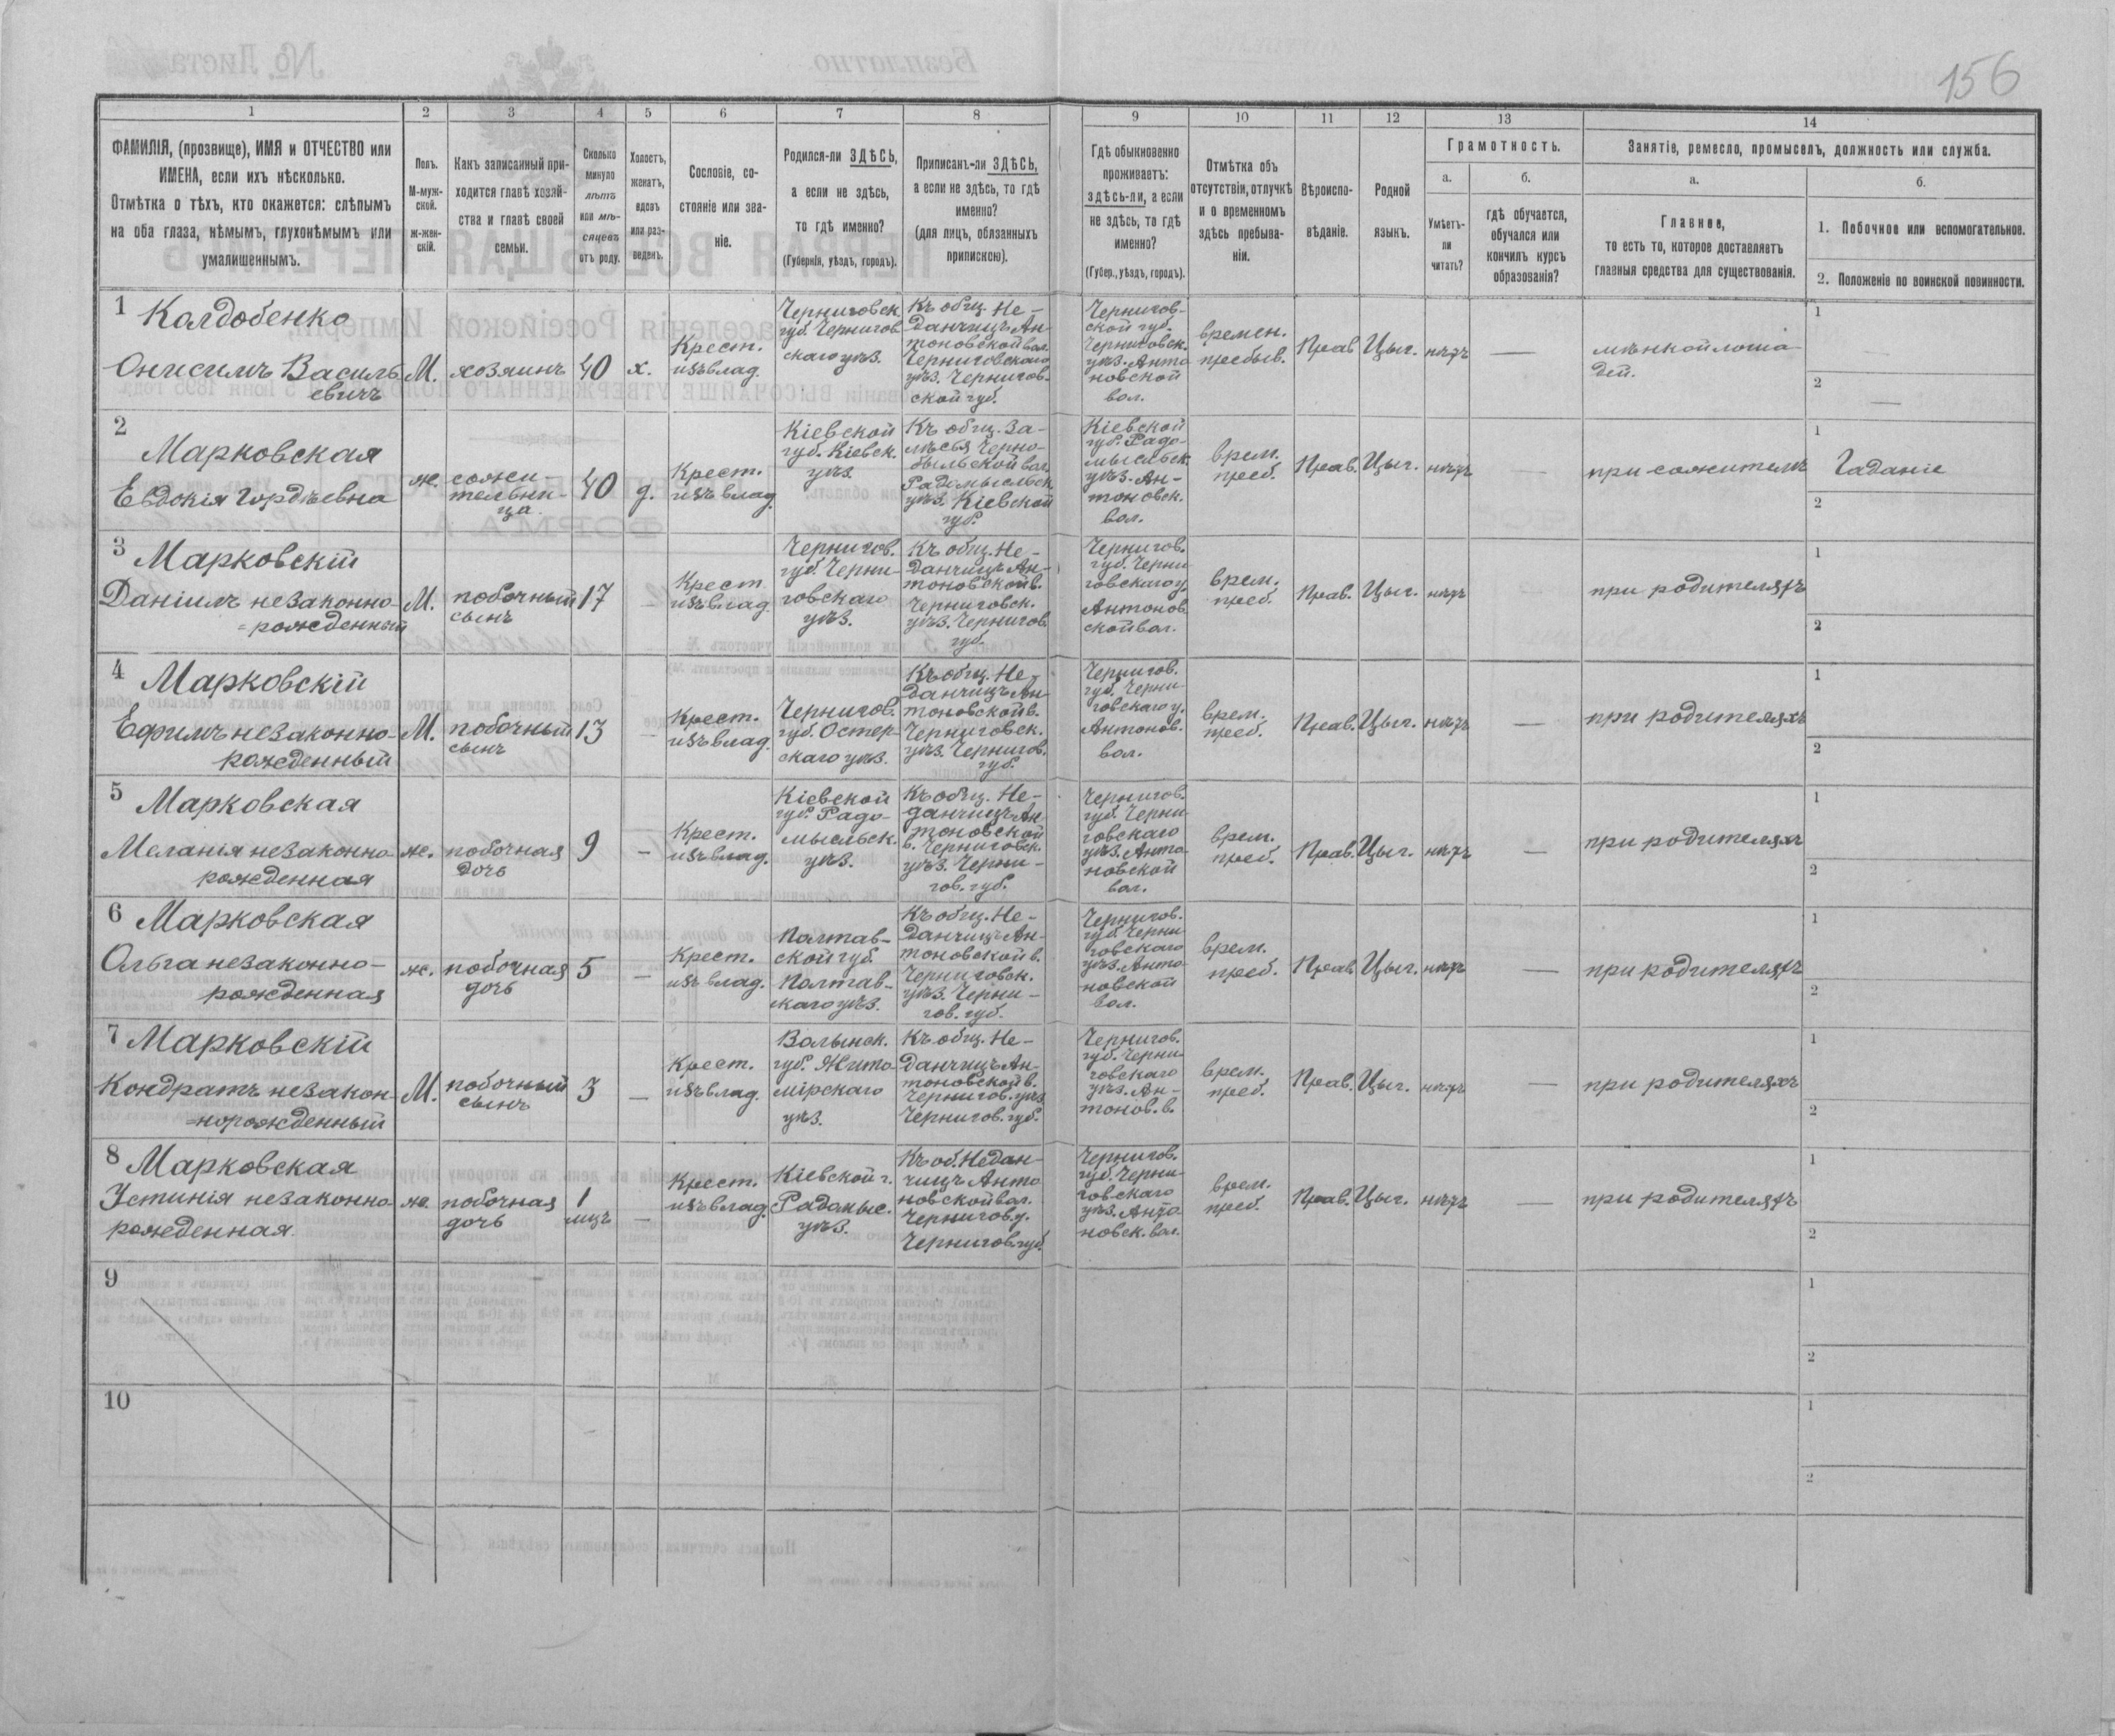 156
1
2
3
4
5
6
7
8
9
10
11
12
13
14
ФАМИЛІЯ, (прозвище), ИМЯ и ОТЧЕСТВО или
ИМЕНА, если ихъ нѣсколько.
Отмѣтка о тѣхъ, кто окажется: слѣпымъ
на оба глаза, нѣмымъ, глухонѣмымъ или
умалишеннымъ.
Полъ.
М-муж-
ской.
Ж-жен-
скій.
Какъ записанный при-
ходится главѣ хозяй-
ства и главѣ своей
семьи.
Сколько
минуло
лѣтъ
или мѣ-
сяцевъ
отъ роду.
Холостъ,
женатъ,
вдовъ
или раз-
веденъ.
Сословіе, со-
стояніе или зва-
ніе.
Родился-ли ЗДѢСЬ,
а если не здѣсь,
то гдѣ именно?
(Губернія, уѣздъ, городъ).
Приписанъ-ли ЗДѢСЬ,
а если не здѣсь, то гдѣ
именно?
(для лицъ, обязанныхъ
припискою).
Гдѣ обыкновенно
проживаетъ:
здѣсь-ли, а если
не здѣсь, то гдѣ
именно?
(Губер., уѣздъ, городъ).
Отмѣтка объ
отсутствіи, отлучкѣ
и о временномъ
здѣсь пребыва-
ніи.
Вѣроиспо-
вѣданіе.
Родной
языкъ.
Грамотность.
а.
б.
Умѣетъ-
ли
читать?
гдѣ обучается,
обучался или
кончилъ курсъ
образованія?
Занятіе, ремесло, промыселъ, должность или служба.
а.
б.
Главное,
то есть то, которое доставляетъ
главныя средства для существованія.
1. Побочное или вспомогательное.
2. Положеніе по воинской повинности.
1 Колдобенко
Онисимъ Василь
евичъ
М.
хозяинъ
40
х.
Крест.
изъ влад.
Черниговск
губ. Чернигов
скаго уѣз.
Къ общ. Не-
данчицъ Ан-
тоновской вол.
Черниговскаго
уѣз. Чернигов-
ской губ.
Чернигов-
ской губ.
Черниговск.
уѣз. Анто
новской
вол.
времен.
пребыв.
Прав
Цыг.
нѣтъ
—
мѣнкой лоша
дей.
1
2
—
2
Марковская
Евдокія Гордѣевна
ж.
сожи-
тельни-
ца.
40
д.
Крест.
изъ влад.
Кіевской
губ. Кіевск.
уѣз.
Къ общ. За-
лѣсья Черно-
быльской вол.
Радомысльск
уѣз. Кіевской
губ.
Кіевской
губ. Радо-
мысльск.
уѣз. Ан-
тоновск.
вол.
врем.
преб.
Прав.
Цыг.
нѣтъ
—
при сожителѣ
1
Гаданіе
2
3 Марковскій
Даніилъ незаконно
=рожденный
М.
побочный
сынъ
17
—
Крест
изъ влад.
Чернигов.
губ. Черни-
говскаго
уѣз.
Къ общ. Не-
данчицъ Ан-
тоновской в.
Черниговск.
уѣз. Чернигов.
губ.
Чернигов.
губ. Черни
говскаго у.
Антонов
ской вол.
врем.
преб.
Прав.
Цыг.
нѣтъ
—
при родителяхъ
1
2
4 Марковскій
Ефимъ незаконно-
рожденный
М.
побочный
сынъ
13
—
Крест.
изъ влад.
Чернигов.
губ. Остер-
скаго уѣз.
Къ общ. Не-
данчицъ Ан-
тоновской в.
Черниговск.
уѣз. Чернигов.
губ.
Чернигов.
губ. Черни-
говскаго у.
Антонов.
вол.
врем.
преб.
Прав.
Цыг.
нѣтъ
—
при родителяхъ
1
2
5 Марковская
Меланія незаконно-
рожденная
ж.
побочная
дочь
9
—
Крест.
изъ влад.
Кіевской
губ. Радо-
мысльск.
уѣз.
Къ общ. Не-
данчицъ Ан-
тоновской
в. Черниговск.
уѣз. Черни-
гов. губ.
Чернигов.
губ. Черни-
говскаго
уѣз. Анто
новской
вол.
врем.
преб.
Прав.
Цыг.
нѣтъ
—
при родителяхъ
1
2
6 Марковская
Ольга незаконно-
рожденная
ж.
побочная
дочь
5
—
Крест.
изъ влад.
Полтав-
ской губ.
Полтав-
скаго уѣз.
Къ общ. Не-
данчицъ Ан-
тоновской в.
Черниговск.
уѣз. Черни-
гов. губ.
Чернигов.
губ. Черни
говскаго
уѣз. Анто
новской
вол.
врем.
преб.
Прав
Цыг.
нѣтъ
—
при родителяхъ
1
2
7 Марковскій
Кондратъ незакон-
=норожденный
М.
побочный
сынъ
3
—
Крест.
изъ влад.
Волынск.
губ. Жито
мірскаго
уѣз.
Къ общ. Не-
данчицъ Ан-
тоновской в.
Чернигов. уѣз.
Чернигов. губ.
Чернигов.
губ. Черни-
говскаго
уѣз. Ан-
тонов. в.
врем.
преб.
Прав.
Цыг.
нѣтъ
—
при родителяхъ
1
2
8 Марковская
Устинія незаконно-
рожденная.
ж.
побочная
дочь
1
мцъ
—
Крест.
изъ влад.
Кіевской г.
Радомыс.
уѣз.
Къ об. Недан-
чицъ Анто
новской вол.
Чернигов. у.
Чернигов. губ.
Чернигов.
губ. Черни-
говскаго
уѣз. Анто
новск. вол.
врем.
преб.
Прав.
Цыг.
нѣтъ
—
при родителяхъ
1
2
9
1
2
10
1
2